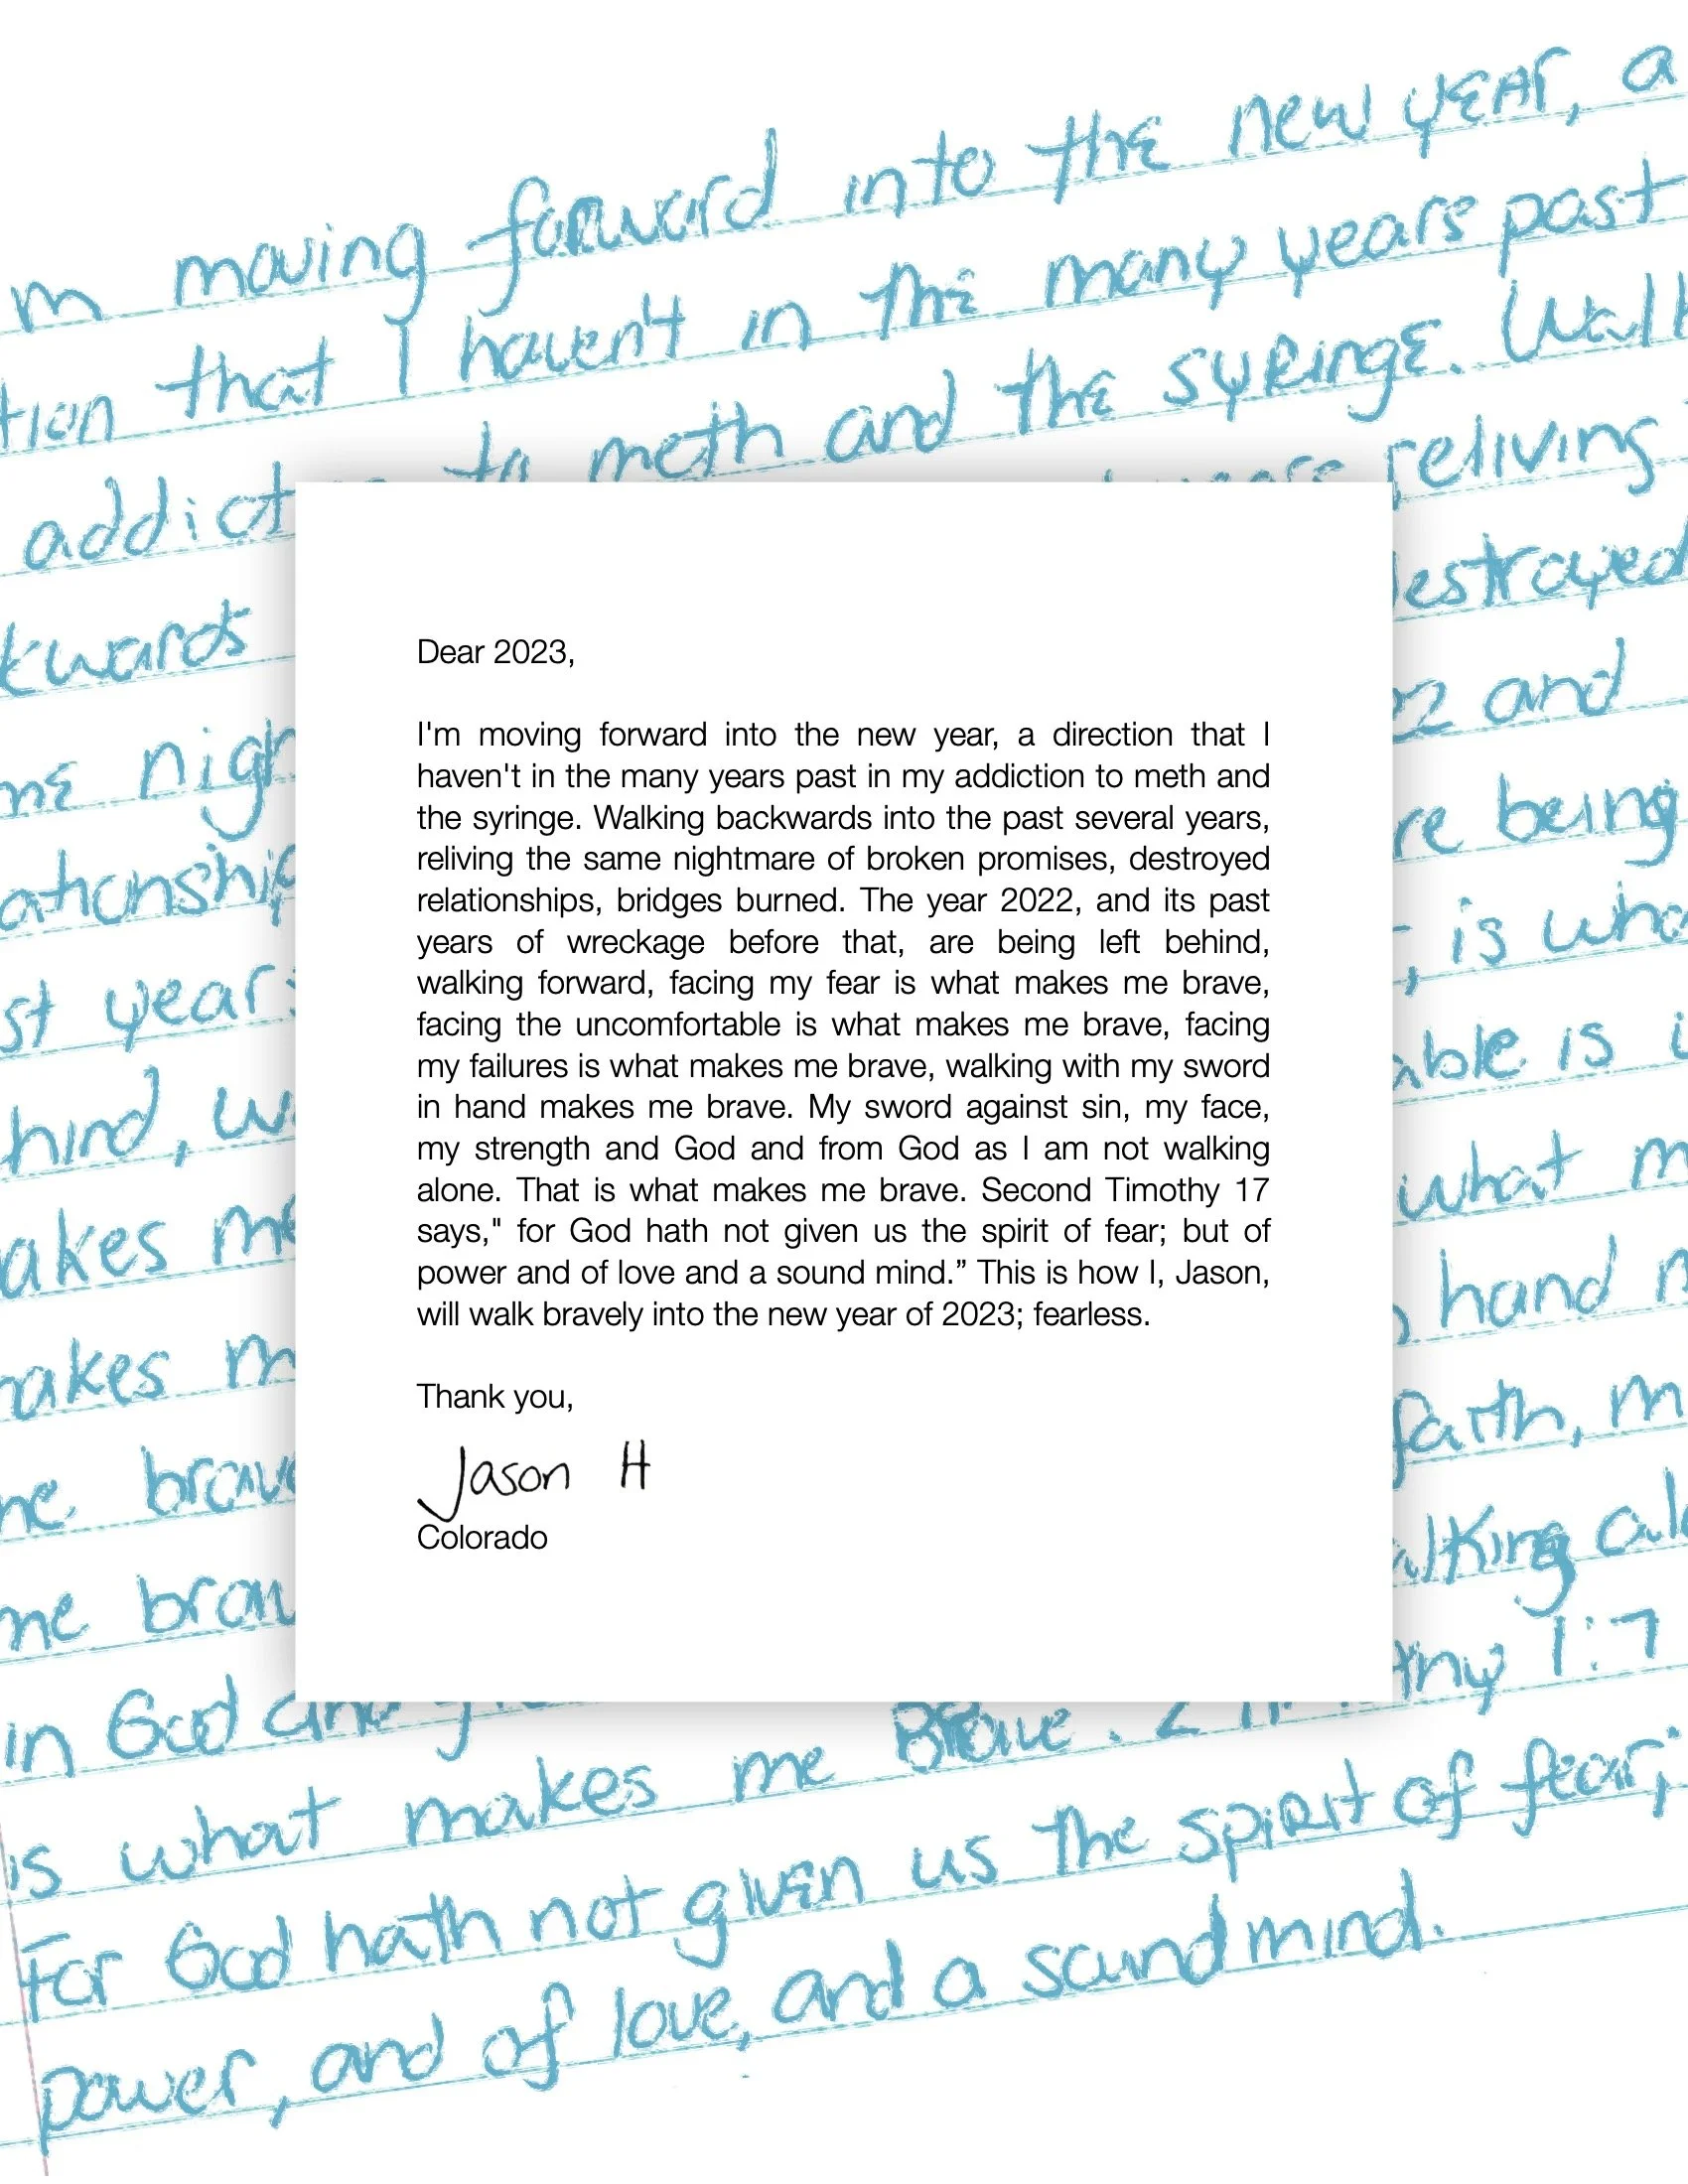 m moving forward into the new year, a
tion that I haven't in the many years past
addict to meth and the syringe. Walk
years reliving
kwards
estroyed
me nigh
22 and
ationship
re being
st years
, is wha
hind, w
able is
akes me
what m
hand m
makes m
faith, m
me brave
alking alo
me brav
thy 1:7
in God and
is what makes me Brave. 2
For God hath not given us the spirit of fear;
power, and of love, and a sound mind.
Dear 2023,
I'm moving forward into the new year, a direction that I
haven't in the many years past in my addiction to meth and
the syringe. Walking backwards into the past several years,
reliving the same nightmare of broken promises, destroyed
relationships, bridges burned. The year 2022, and its past
years of wreckage before that, are being left behind,
walking forward, facing my fear is what makes me brave,
facing the uncomfortable is what makes me brave, facing
my failures is what makes me brave, walking with my sword
in hand makes me brave. My sword against sin, my face,
my strength and God and from God as I am not walking
alone. That is what makes me brave. Second Timothy 17
says," for God hath not given us the spirit of fear; but of
power and of love and a sound mind.” This is how I, Jason,
will walk bravely into the new year of 2023; fearless.
Thank you,
Jason H
Colorado